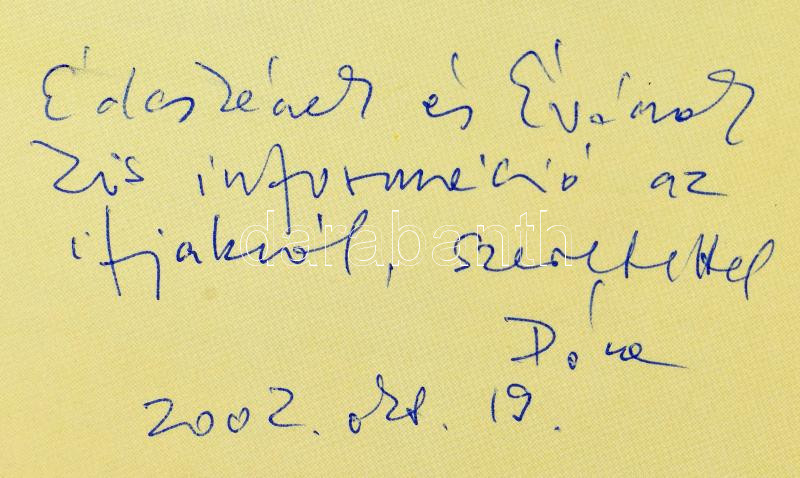 és Évának
kis információ az
ifjakról, szeretettel
Dóra
2002. okt. 19.
darabanth